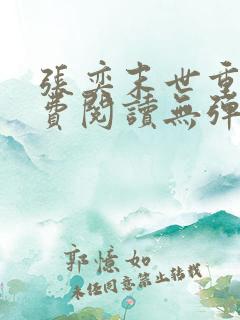 張奕末世重
費閱讀無彈
郭憶如
未經同意禁止轉載